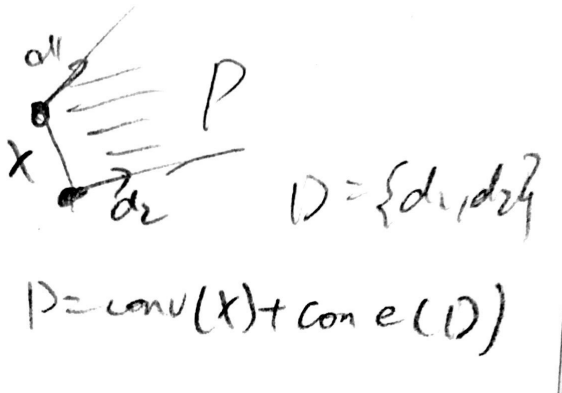 d1
P
X
d2
D={d1,d2}
P=conv(X)+cone(D)